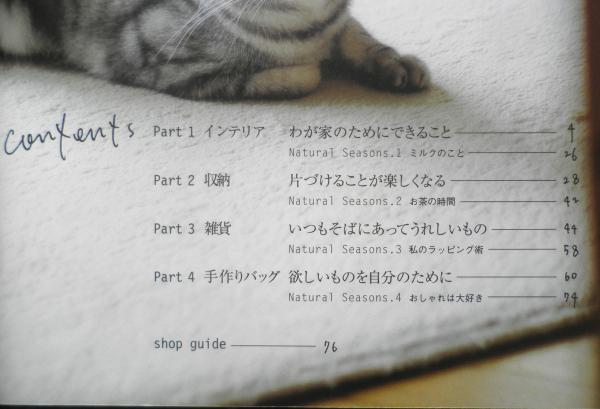 contents
Part 1 インテリア わが家のためにできること 4
Natural Seasons.1 ミルクのこと 26
Part 2 収納 片づけることが楽しくなる 28
Natural Seasons.2 お茶の時間 42
Part 3 雑貨 いつもそばにあってうれしいもの 44
Natural Seasons.3 私のラッピング術 58
Part 4 手作りバッグ 欲しいものを自分のために 60
Natural Seasons.4 おしゃれは大好き 74
shop guide 76